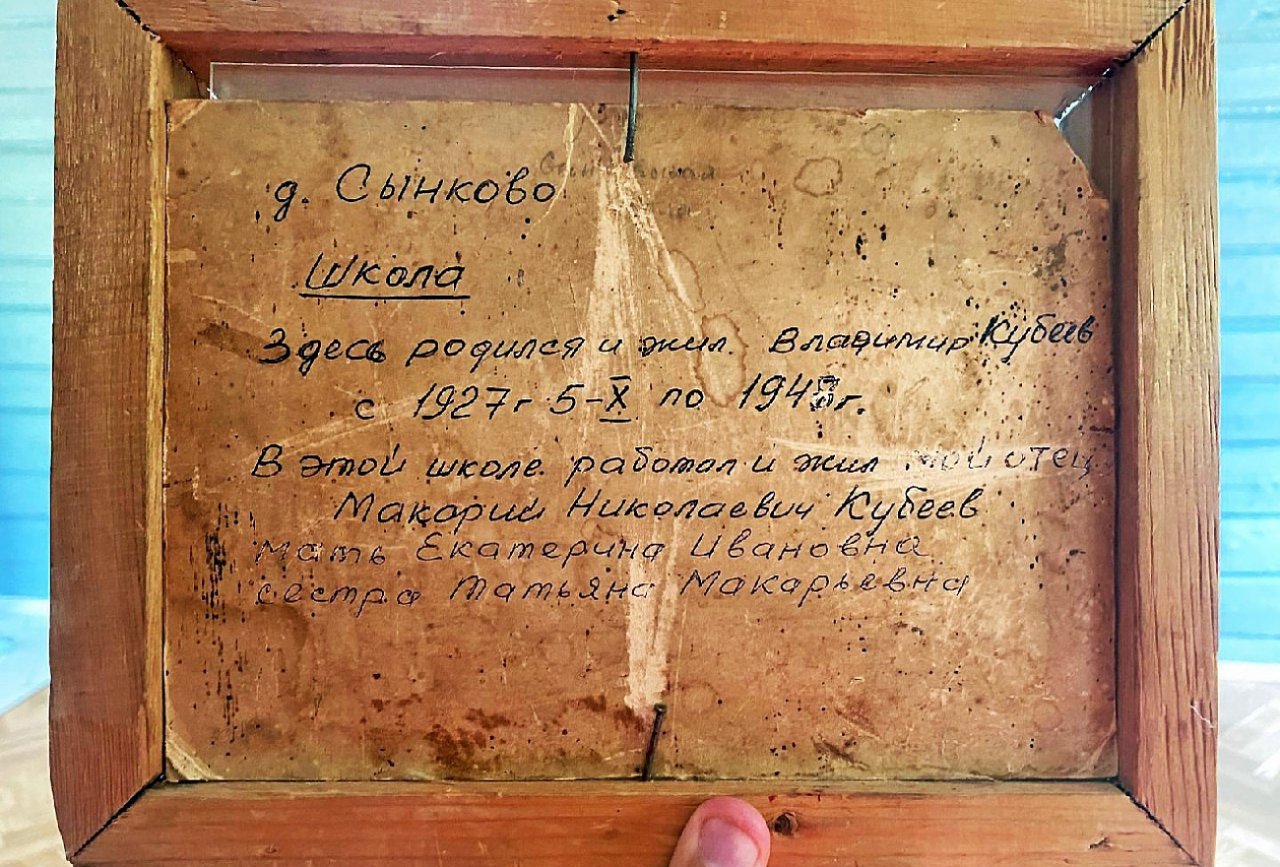 д. Сынково
Школа
Здесь родился и жил. Владимир Кубеев
с 1927г 5-X по 1948г.
В этой школе работал и жил мой отец
Макарий Николаевич Кубеев
Мать Екатерина Ивановна
сестра Татьяна Макарьевна